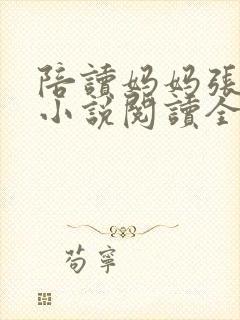 陪讀媽媽張
小說閱讀全
茍寧